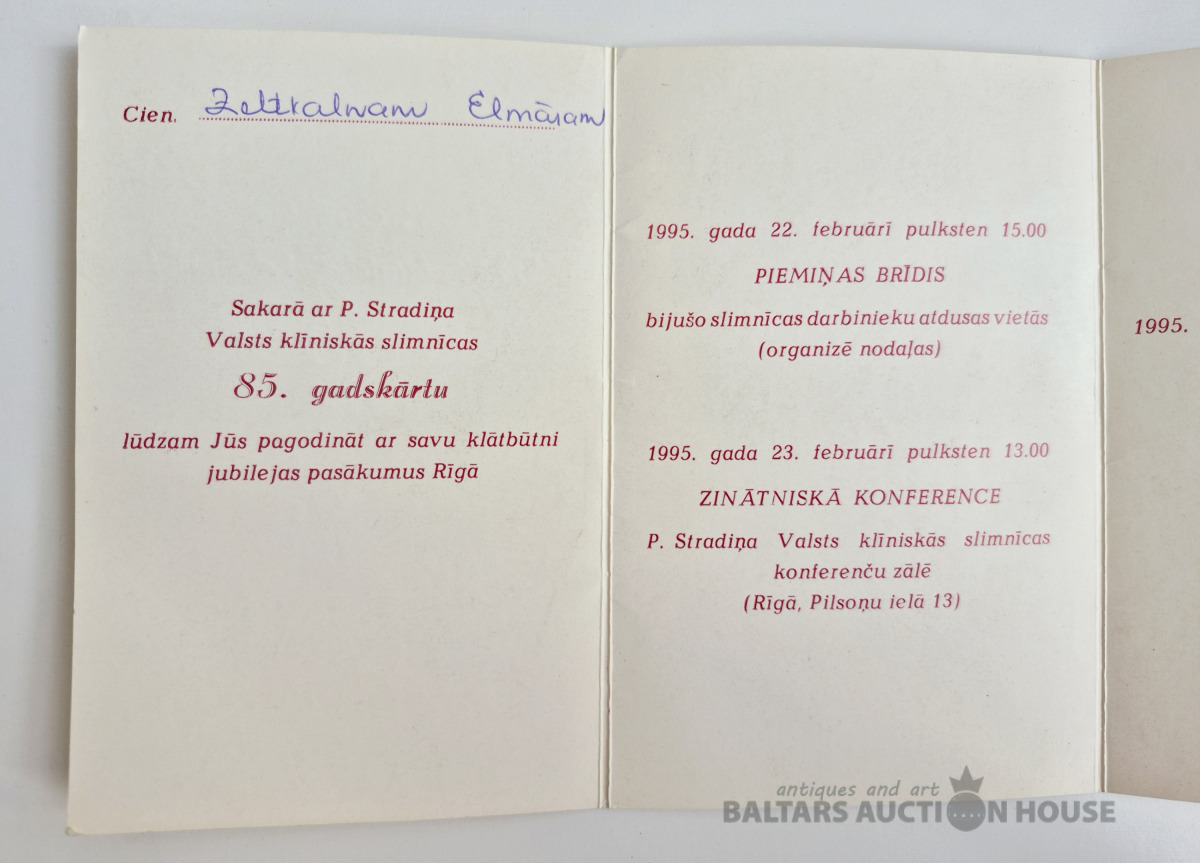 Cien. Zeltkalnam Elmāram
Sakarā ar P. Stradiņa
Valsts klīniskās slimnīcas
85. gadskārtu
lūdzam Jūs pagodināt ar savu klātbūtni
jubilejas pasākumus Rīgā
1995. gada 22. februārī pulksten 15.00
PIEMIŅAS BRĪDIS
bijušo slimnīcas darbinieku atdusas vietās
(organizē nodaļas)
1995. gada 23. februārī pulksten 13.00
ZINĀTNISKĀ KONFERENCE
P. Stradiņa Valsts klīniskās slimnīcas
konferenču zālē
(Rīgā, Pilsoņu ielā 13)
1995.
antiques and art
BALTARS AUCTION HOUSE